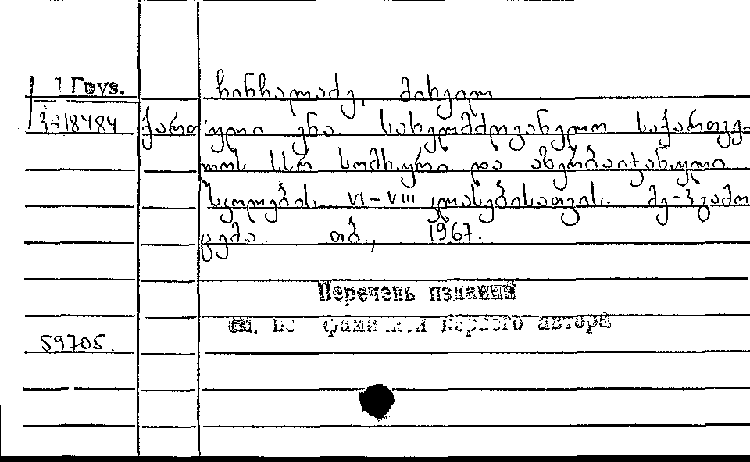 1 Груз.
ჩინჩალაძე, მიხეილ
3-18484 ქართული ენა. სახელმძღვანელო საქართვე-
ლოს სსრ სომხური და აზერბაიჯანული
სკოლების VI-VIII კლასებისათვის. მე-3 გამო-
ცემა. თბ., 1967.
Перечень изданий
см. по фамилии первого автора
59705.